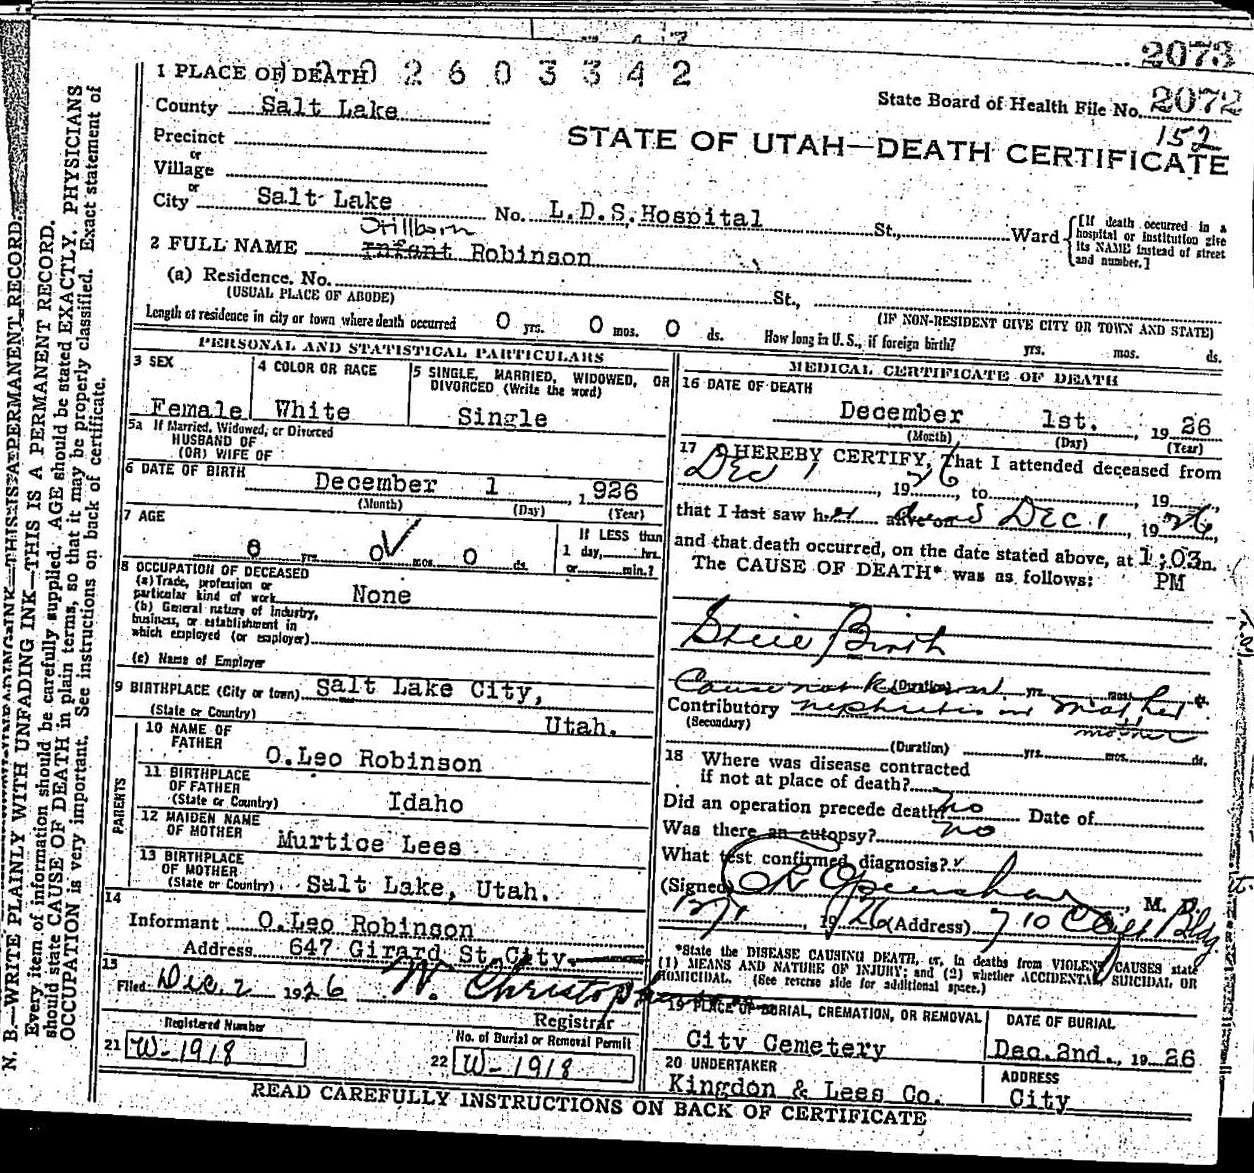 2073
1 PLACE OF DEATH
2 6 0 3 3 4 2
State Board of Health File No. 2072
152
County Salt Lake
STATE OF UTAH—DEATH CERTIFICATE
Precinct
or
Village
or
City Salt Lake No. L.D.S. Hospital St., Ward
[If death occurred in a hospital or institution give its NAME instead of street and number.]
Stillborn
2 FULL NAME Infant Robinson
(a) Residence. No. St.,
(USUAL PLACE OF ABODE)
(IF NON-RESIDENT GIVE CITY OR TOWN AND STATE)
Length of residence in city or town where death occurred 0 yrs. 0 mos. 0 ds. How long in U. S., if foreign birth? yrs. mos. ds.
PERSONAL AND STATISTICAL PARTICULARS
3 SEX
Female
4 COLOR OR RACE
White
5 SINGLE, MARRIED, WIDOWED, OR DIVORCED (Write the word)
Single
5a If Married, Widowed, or Divorced
HUSBAND OF
(OR) WIFE OF
6 DATE OF BIRTH
December 1, 1926
(Month) (Day) (Year)
7 AGE
0 yrs. 0 mos. 0 ds.
If LESS than
1 day, hrs.
or min.?
8 OCCUPATION OF DECEASED
(a) Trade, profession or
particular kind of work None
(b) General nature of Industry,
business, or establishment in
which employed (or employer)
(c) Name of Employer
9 BIRTHPLACE (City or town) Salt Lake City,
(State or Country) Utah.
PARENTS
10 NAME OF FATHER
O. Leo Robinson
11 BIRTHPLACE OF FATHER
(State or Country) Idaho
12 MAIDEN NAME OF MOTHER
Murtice Lees
13 BIRTHPLACE OF MOTHER
(State or Country) Salt Lake, Utah.
14
Informant O. Leo Robinson
Address 647 Girard St. City
15
Filed Dec. 2 1926
Registrar
Registered Number
21 W-1918
No. of Burial or Removal Permit
22 W-1918
MEDICAL CERTIFICATE OF DEATH
16 DATE OF DEATH
December 1st., 1926
(Month) (Day) (Year)
17 I HEREBY CERTIFY, That I attended deceased from
Dec 1, 1926, to , 19
that I last saw her alive on Dec. 1, 1926,
and that death occurred, on the date stated above, at 1:03 m.
PM
The CAUSE OF DEATH* was as follows:
Still Birth
Cause not known
(Duration) yrs. mos. ds.
Contributory nephritis in mother
(Secondary)
mother
(Duration) yrs. mos. ds.
18 Where was disease contracted
if not at place of death?
Did an operation precede death? no Date of
Was there an autopsy? no
What test confirmed diagnosis?
(Signed) Openshaw, M. D.
12/1, 1926 (Address) 710 Bldg
*State the DISEASE CAUSING DEATH, or, in deaths from VIOLENT CAUSES state
(1) MEANS AND NATURE OF INJURY; and (2) whether ACCIDENTAL, SUICIDAL, OR
HOMICIDAL. (See reverse side for additional space.)
19 PLACE OF BURIAL, CREMATION, OR REMOVAL
City Cemetery
DATE OF BURIAL
Dec. 2nd., 1926
20 UNDERTAKER
Kingdon & Lees Co.
ADDRESS
City
READ CAREFULLY INSTRUCTIONS ON BACK OF CERTIFICATE
N. B.—WRITE PLAINLY WITH UNFADING INK—THIS IS A PERMANENT RECORD.
Every item of information should be carefully supplied. AGE should be stated EXACTLY. PHYSICIANS
should state CAUSE OF DEATH in plain terms, so that it may be properly classified. Exact statement of
OCCUPATION is very important. See instructions on back of certificate.